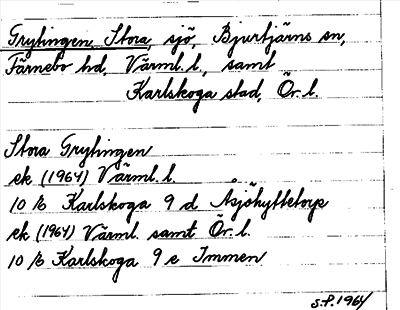 Grytingen, Stora, sjö, Bjurtjärns sn,
Färnebo hd, Värml. l., samt
Karlskoga stad, Ör. l.
Stora Grytingen
ek (1964) Värml. l.
10 E Karlskoga 9 d Åsjöhyttetorp
ek (1964) Värml. samt Ör. l.
10 E Karlskoga 9 e Immen
S.P. 1964